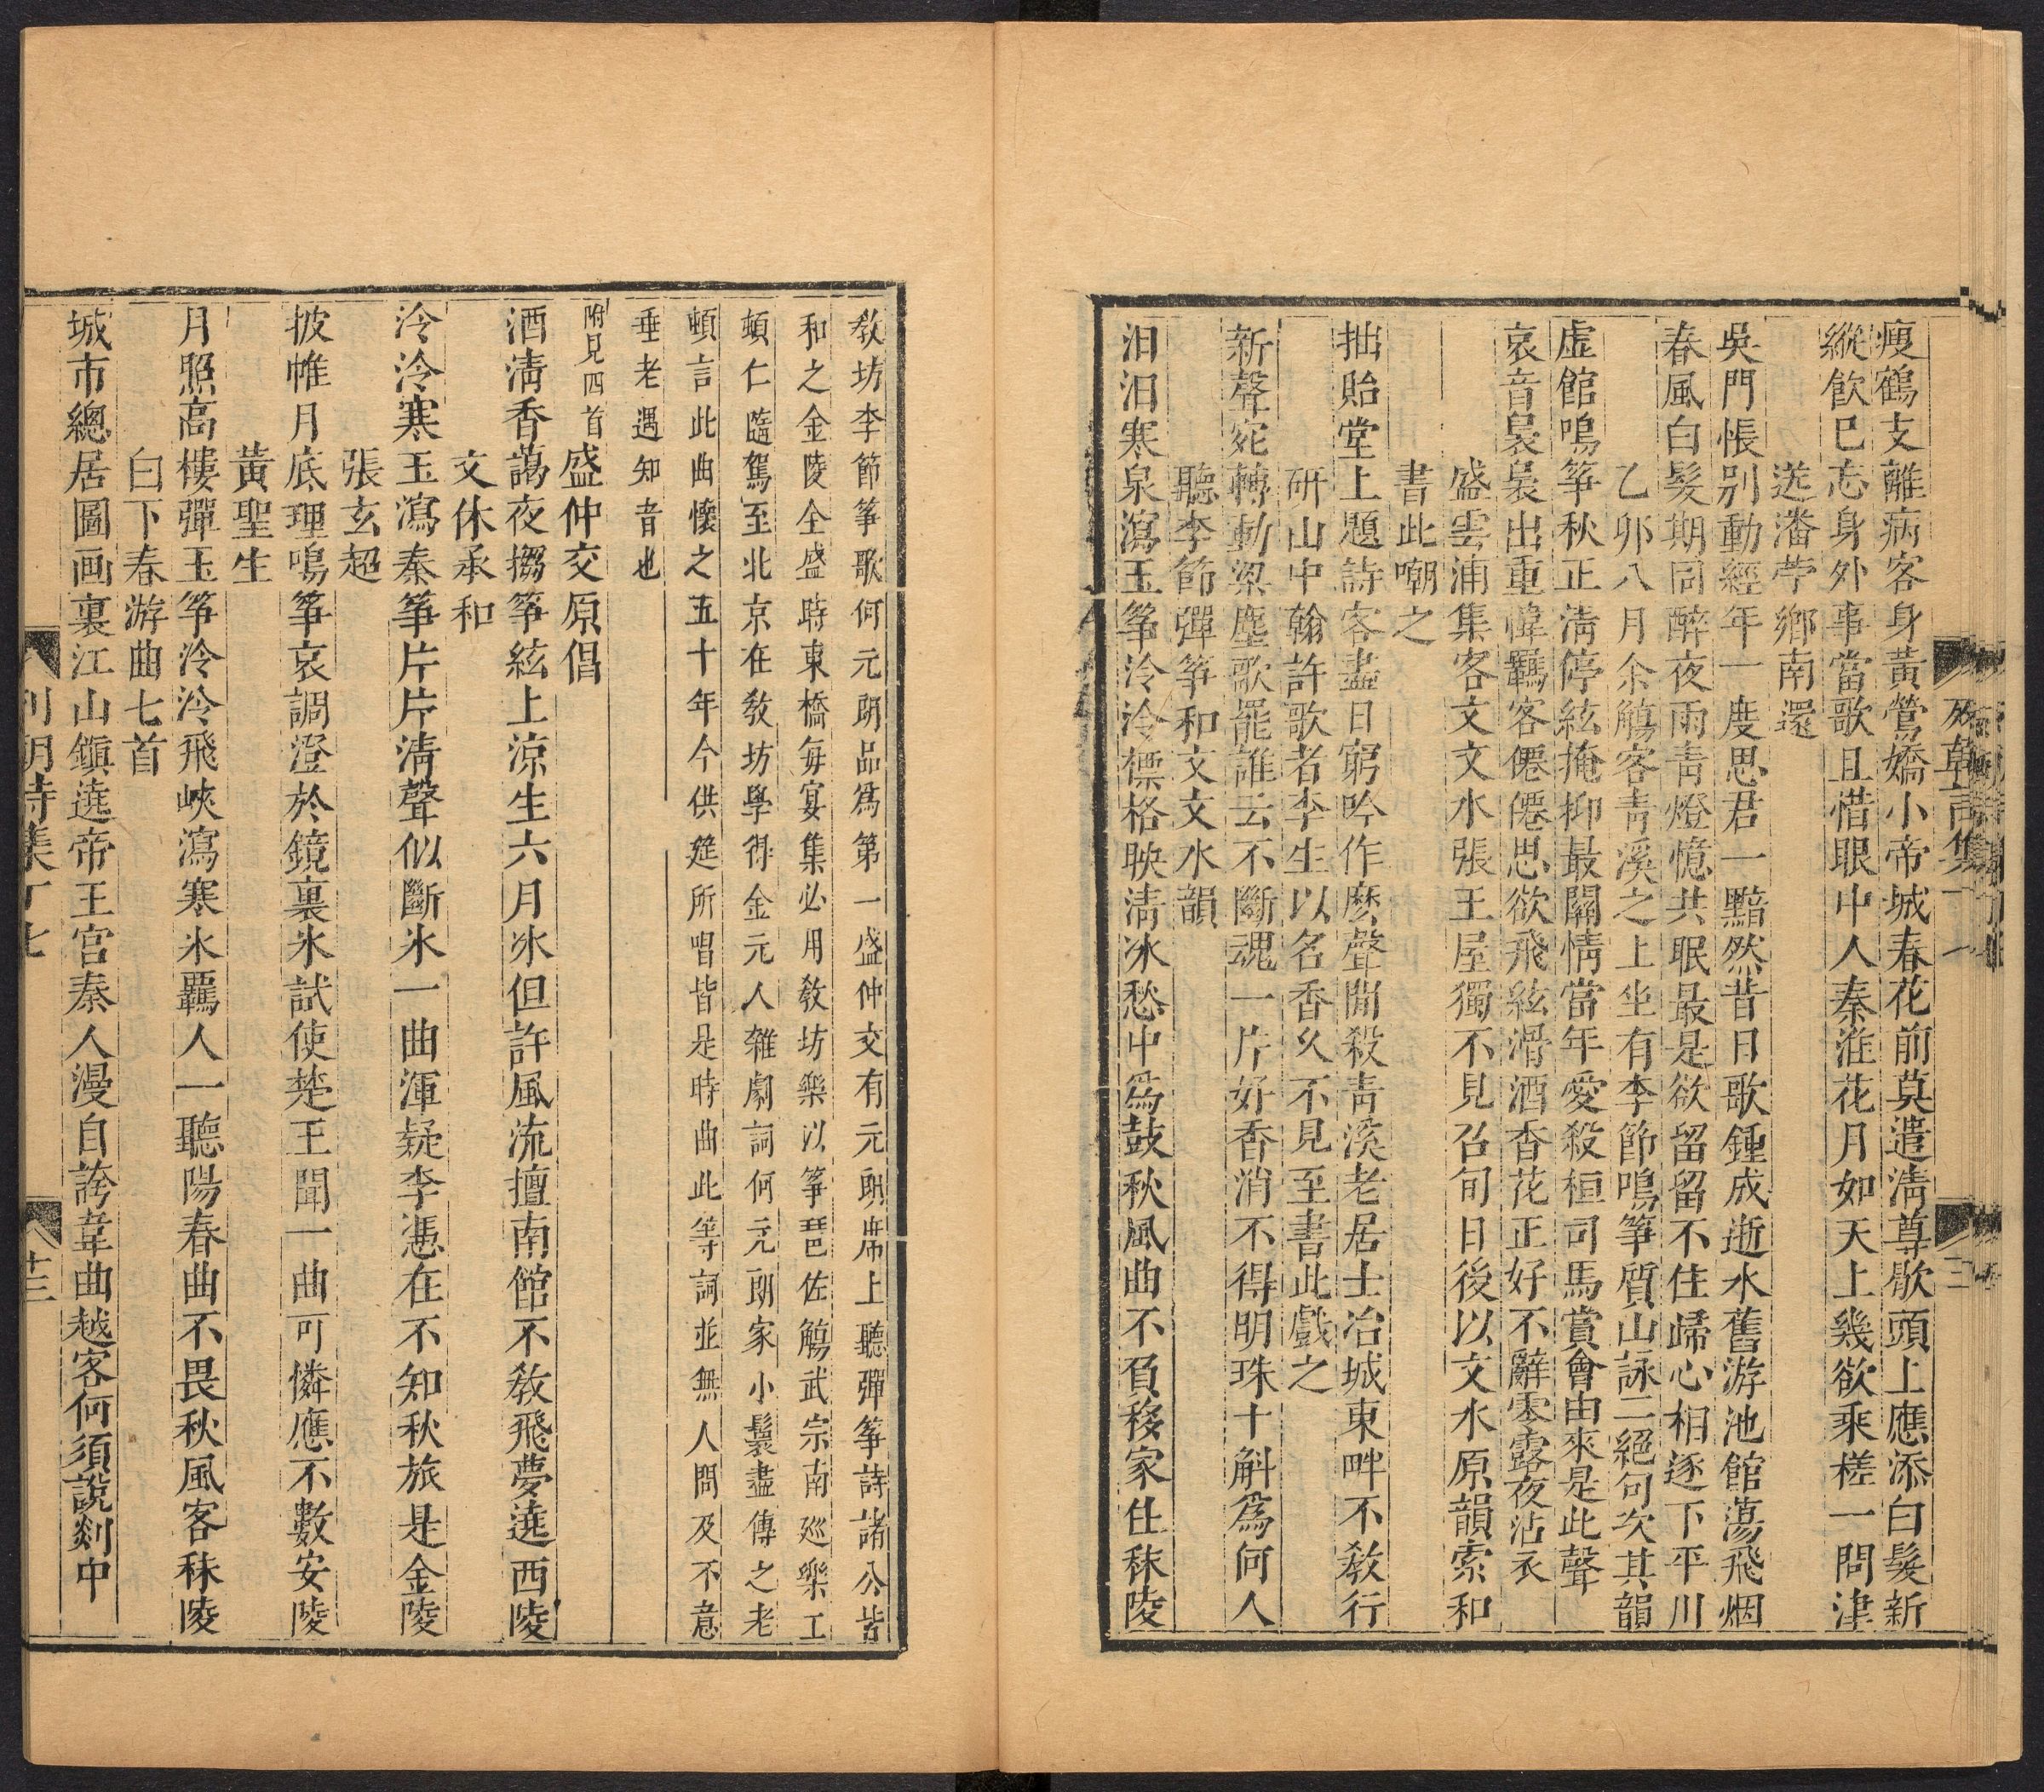 瘦鶴支離病客身黃鶯嬌小帝城春花前莫遣淸尊歇頭上應添白髮新
縱飮已忘身外事當歌且惜眼中人秦淮花月如天上幾欲乘槎一問津
送潘茡鄉南還
吳門悵别動經年一度思君一黯然昔日歌鍾成逝水舊游池館蕩飛烟
春風白髮期同醉夜雨靑燈憶共眠最是欲留留不住歸心相逐下平川
乙卯八月余觴客靑溪之上坐有李節鳴筝質山詠二絕句次其韻
虛館鳴筝秋正淸停絃掩抑最關情當年愛殺桓司馬賞會由來是此聲
哀音裊裊出重幃羈客僊僊思欲飛絃滑酒香花正好不辭零露夜沾衣
盛雲浦集客文文水張王屋獨不見召旬日後以文水原韻索和
書此嘲之
拙貽堂上題詩客盡日窮吟作麽聲閒殺靑溪老居士冶城東畔不敎行
硏山中翰許歌者李生以名香久不見至書此戲之
新聲宛轉動梁塵歌罷誰云不斷魂一片好香消不得明珠十斛爲何人
聽李節彈筝和文文水韻
汩汩寒泉瀉玉筝泠泠標格映淸冰愁中爲鼓秋風曲不負移家住秣陵
敎坊李節筝歌何元朗品爲第一盛仲交有元朗席上聽彈筝詩諸公皆
和之金陵全盛時東橋每宴集必用敎坊樂以筝琶佐觴武宗南廵樂工
頓仁隨駕至北京在敎坊學得金元人雜劇詞何元朗家小鬟盡傳之老
頓言此曲懷之五十年今供筵所唱皆是時曲此等詞並無人問及不意
垂老遇知音也
附見四首 盛仲交原倡
酒淸香藹夜搊筝絃上涼生六月冰但許風流擅南館不敎飛夢遶西陵
文休承和
泠泠寒玉瀉秦筝片片淸聲似斷氷一曲渾疑李憑在不知秋旅是金陵
張玄超
披帷月底理鳴筝哀調澄於鏡裏氷試使楚王聞一曲可憐應不數安陵
黃聖生
月照高樓彈玉筝泠泠飛峽瀉寒氷羈人一聽陽春曲不畏秋風客秣陵
白下春游曲七首
城市總居圖画裏江山鎭遶帝王宮秦人漫自誇韋曲越客何須說剡中
列朝詩集丁七